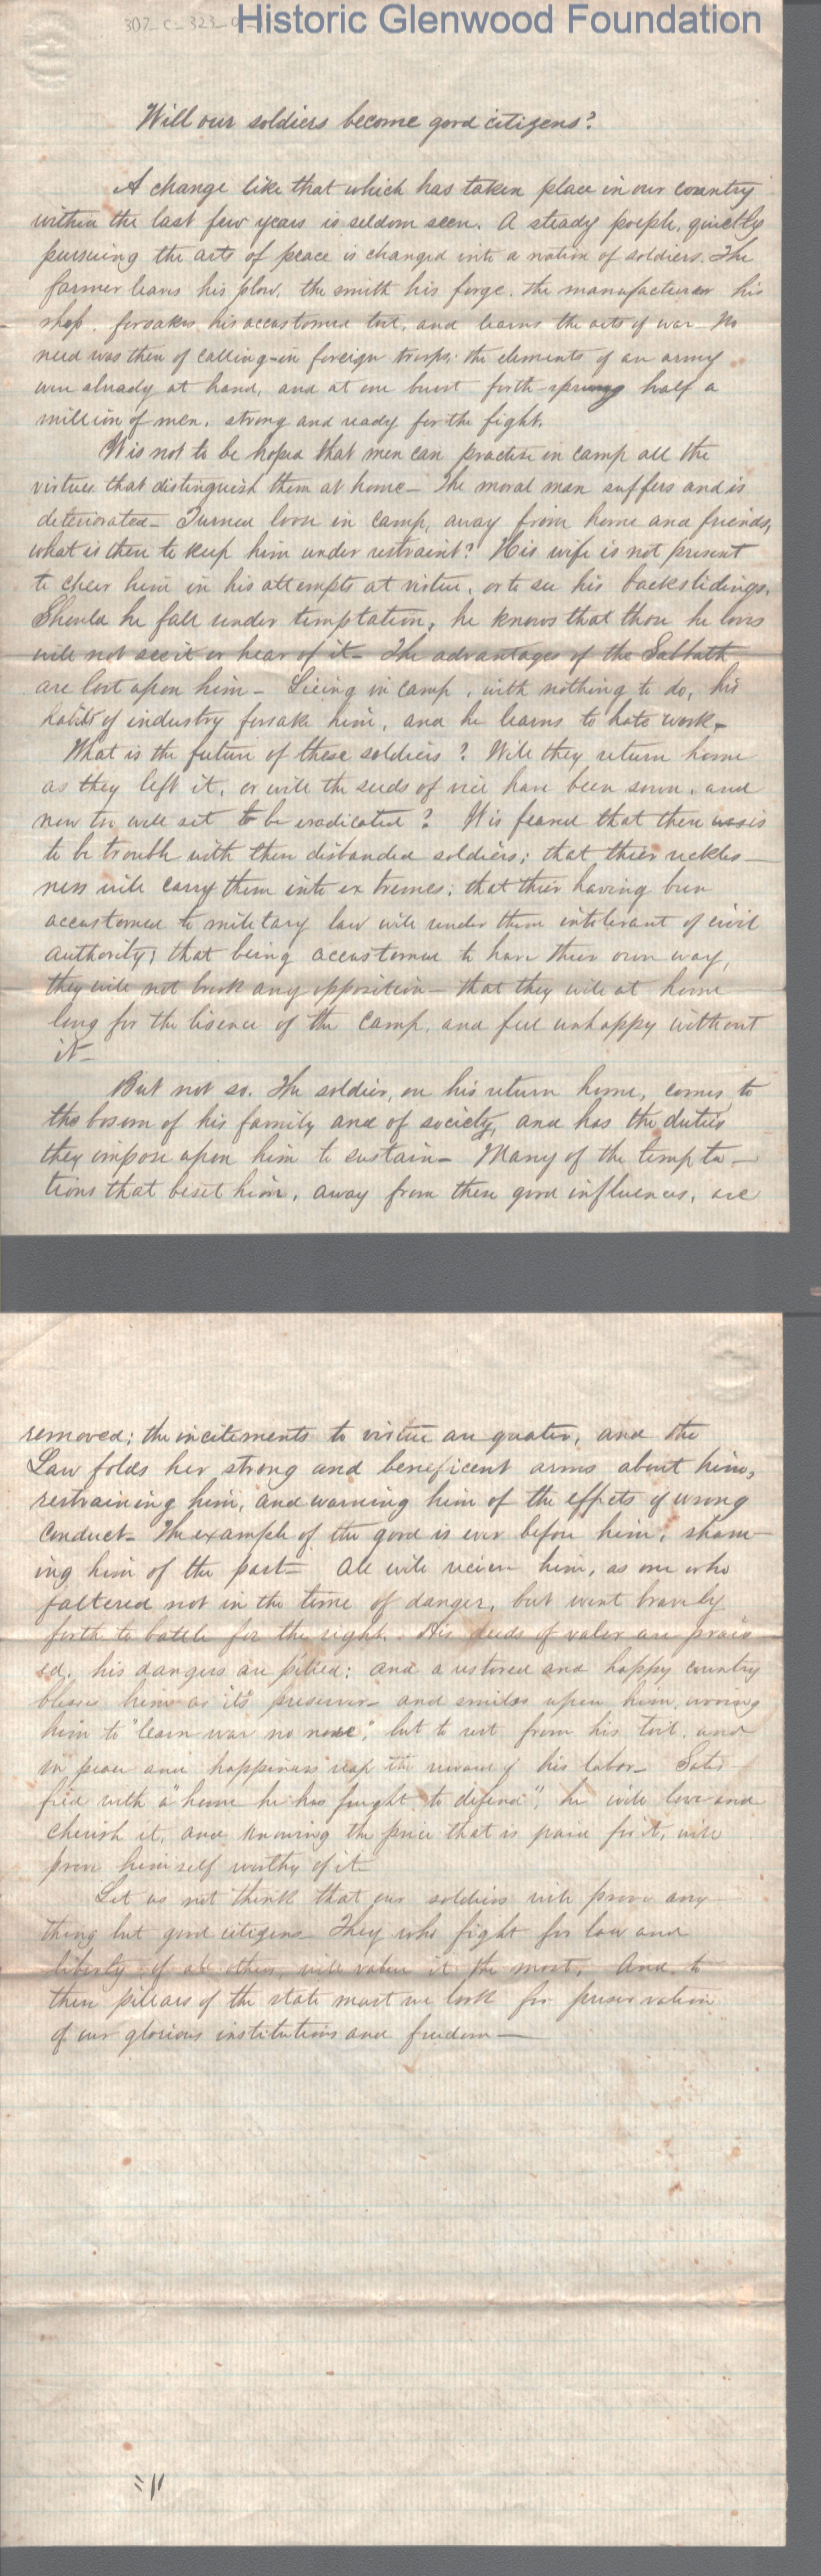 307_C_323_0
Historic Glenwood Foundation
Will our soldiers become good citizens?
A change like that which has taken place in our country
within the last few years is seldom seen. A steady poeple, quietly
pursuing the arts of peace is changed into a nation of soldiers. The
farmer leaves his plow, the smith his forge, the manufacturer his
shop, forsakes his accustomed toil, and learns the arts of war. No
need was there of calling-in foreign troops: the elements of an army
were already at hand, and at one burst forth sprung half a
million of men, strong and ready for the fight.
It is not to be hoped that men can practise in camp all the
virtues that distinguish them at home - The moral man suffers and is
deteriorated - Turned loose in camp, away from home and friends,
what is there to keep him under restraint? His wife is not present
to cheer him in his attempts at virtue, or to see his backslidings.
Should he fall under temptation, he knows that those he loves
will not see it or hear of it - The advantages of the Sabbath
are lost upon him - Living in camp, with nothing to do, his
habits of industry forsake him, and he learns to hate work -
What is the future of these soldiers? Will they return home
as they left it, or will the seeds of vice have been sown, and
now too well set to be eradicated? It is feared that there was is
to be trouble with these disbanded soldiers; that thier reckles-
ness will carry them into extremes; that thier having been
accustomed to military law will render them intolerant of civil
authority; that being accustomed to have thier own way,
they will not brook any opposition - that they will at home
long for the lisence of the camp, and feel unhappy without
it -
But not so. The soldier, on his return home, comes to
the bosom of his family and of society, and has the duties
they impose upon him to sustain - Many of the tempta-
tions that beset him, away from these good influences, are
removed; the incitements to virtue are greater, and the
Law folds her strong and beneficent arms about him,
restraining him, and warning him of the effects of wrong
conduct - The example of the good is ever before him, sham-
ing him of the past - All will recieve him, as one who
faltered not in the time of danger, but went bravely
forth to battle for the right. His deeds of valor are prais
ed, his dangers are pitied; and a restored and happy country
blesses him as its preserver and smiles upon him, wooing
him to "learn war no more", but to rest from his toil, and
in peace and happiness reap the reward of his labor - Satis-
fied with a "home he has fought to defend", he will love and
cherish it, and knowing the price that is paid for it, will
prove himself worthy of it -
Let us not think that our soldiers will prove any
thing but good citizens - They who fight for law and
liberty of all others, will value it the most. And to
these pillars of the state must we look for preservation
of our glorious institutions and freedom -